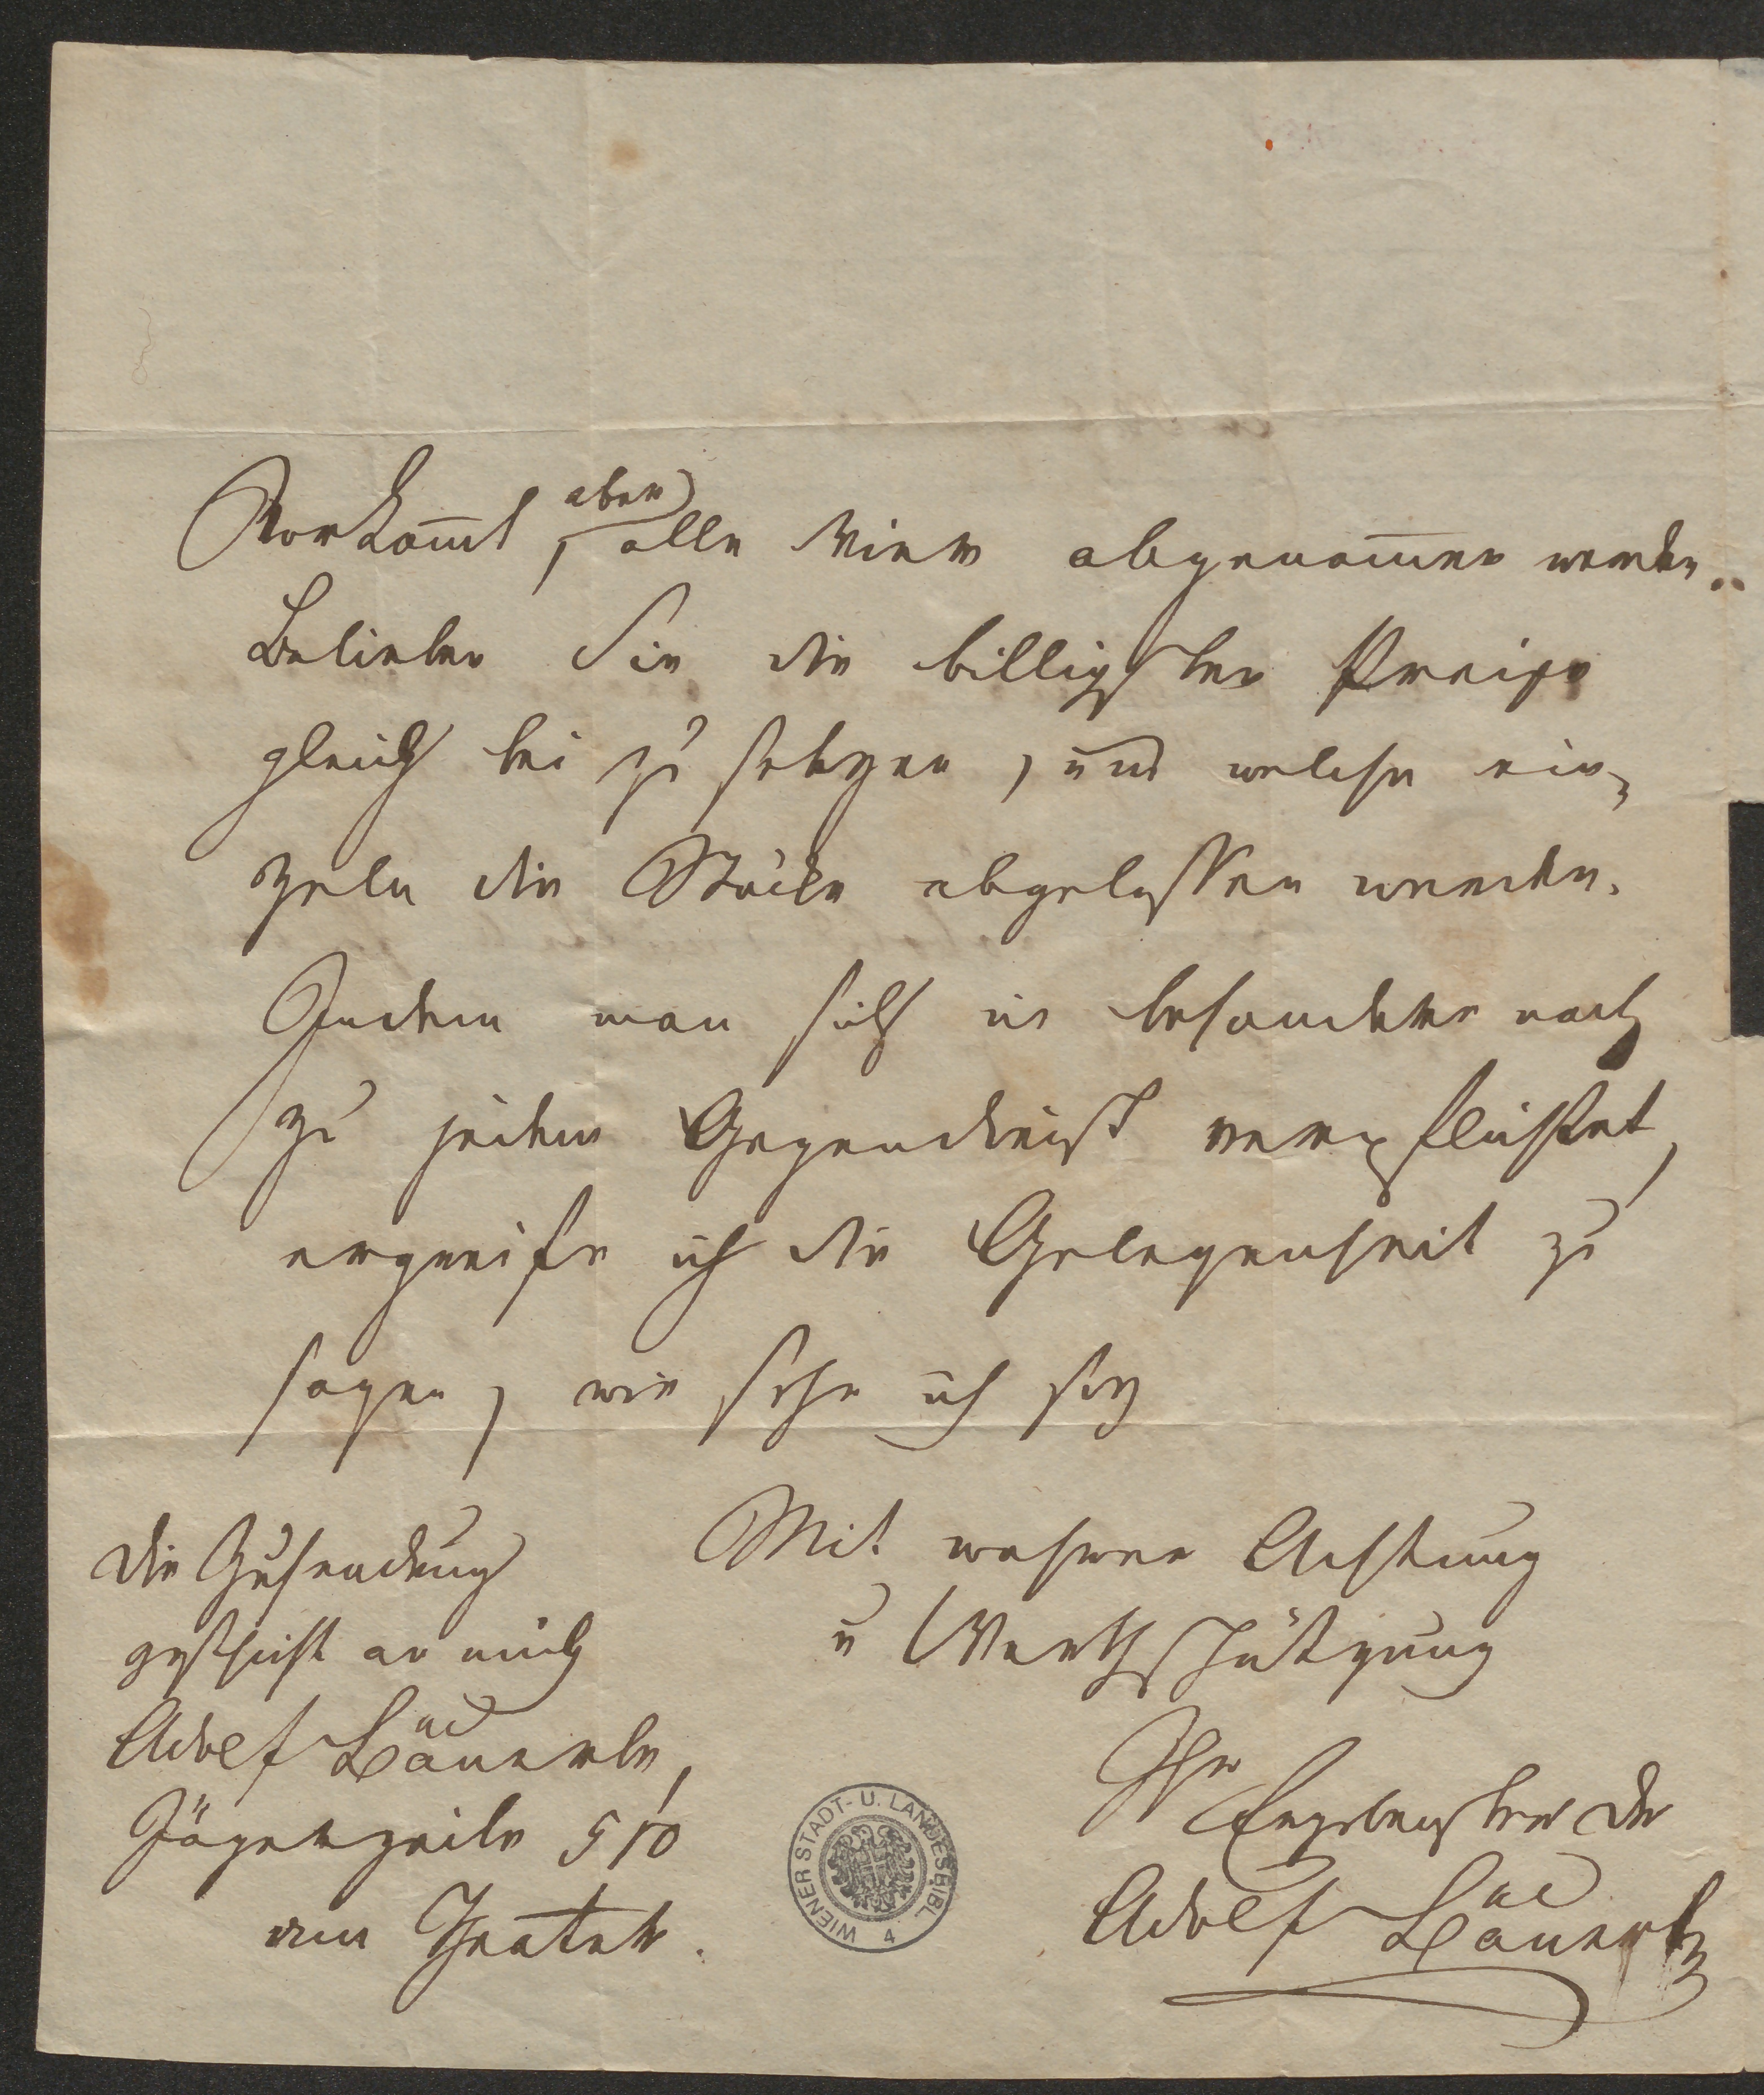 Vorkom̅t, aber alle Vier abgenom̅en werden.
Belieben Sie die billigsten Preise
gleich bei zu setzen, und welche ein=
zeln die Stücke abgelassen werden.
Indem man sich ins besondere noch
zu jedem Gegendienst verpflichtet,
ergreife ich die Gelegenheit zu
sagen, wie sehr ich sey
Mit wahrer Achtung
u Werthschätzung
Ihr
Ergebenster Dr
Adolf Bäuerle
die Zusendung
geschieht an mich
Adolf Bäuerle,
Jägerzeile 510
am Prater.
WIENER STADT- U. LANDESBIBL. 4